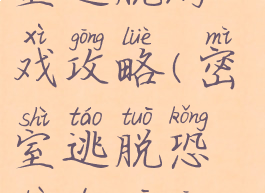 xì gōng lüè mì
戏攻略(密
shì táo tuō kǒng
室逃脱恐